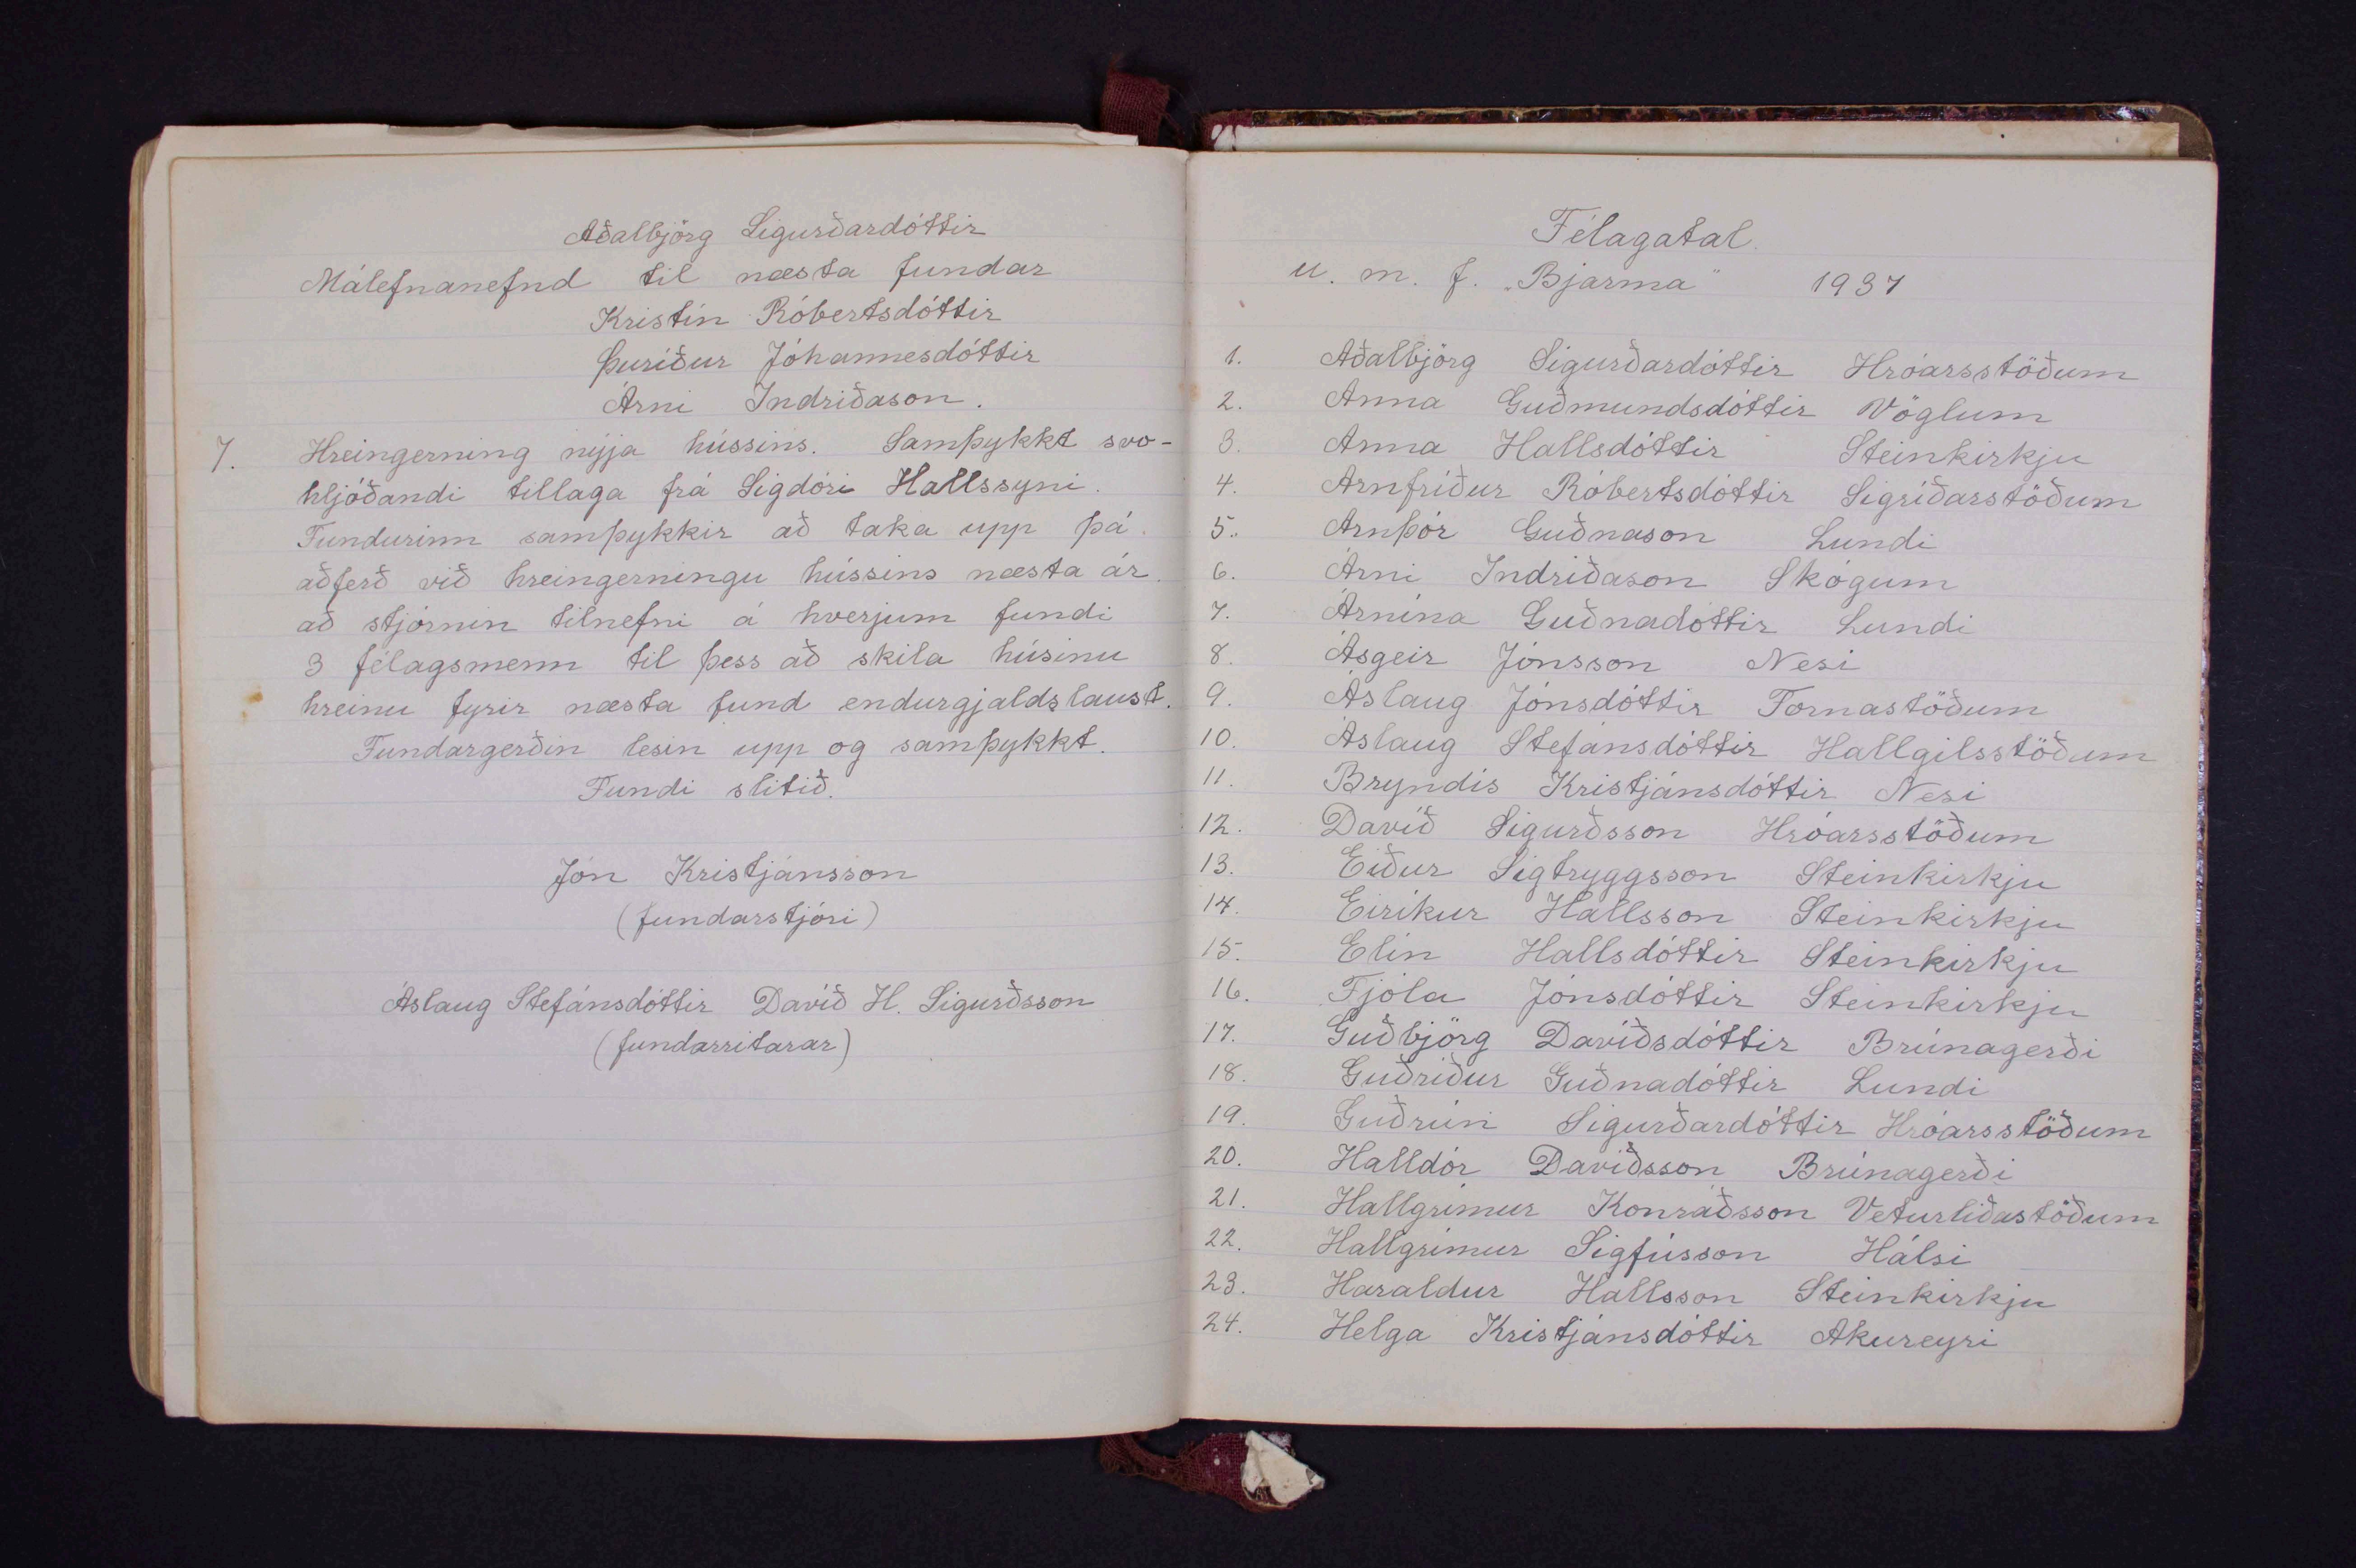 Aðalbjörg Sigurðardóttir
Málefnanefnd til næsta fundar
Kristín Róbertsdóttir
Þuríður Jóhannesdóttir
Árni Indriðason.
7. Hreingerning nýja hússins. Samþykkt svo-
hljóðandi tillaga frá Sigdóri Hallssyni.
Fundurinn samþykkir að taka upp þá
aðferð við hreingerningu hússins næsta ár
að stjórnin tilnefni á hverjum fundi
3 félagsmenn til þess að skila húsinu
hreinu fyrir næsta fund endurgjaldslaust.
Fundargerðin lesin upp og samþykkt.
Fundi slitið.
Jón Kristjánsson
(fundarstjóri)
Áslaug Stefánsdóttir Davíð H. Sigurðsson
(fundarritarar)
Félagatal.
U. m. f. „Bjarma" 1937
1. Aðalbjörg Sigurðardóttir Hróarsstöðum
2. Anna Guðmundsdóttir Vöglum
3. Anna Hallsdóttir Steinkirkju
4. Arnfríður Róbertsdóttir Sigríðarstöðum
5. Arnþór Guðnason Lundi
6. Árni Indriðason Skógum
7. Árnína Guðnadóttir Lundi
8. Ásgeir Jónsson Nesi
9. Áslaug Jónsdóttir Fornastöðum
10. Áslaug Stefánsdóttir Hallgilsstöðum
11. Bryndís Kristjánsdóttir Nesi
12. Davíð Sigurðsson Hróarsstöðum
13. Eiður Sigtryggsson Steinkirkju
14. Eiríkur Hallsson Steinkirkju
15. Elín Hallsdóttir Steinkirkju
16. Fjóla Jónsdóttir Steinkirkju
17. Guðbjörg Davíðsdóttir Brúnagerði
18. Guðríður Guðnadóttir Lundi
19. Guðrún Sigurðardóttir Hróarsstöðum
20. Halldór Davíðsson Brúnagerði
21. Hallgrímur Konráðsson Veturliðastöðum
22. Hallgrímur Sigfússon Hálsi
23. Haraldur Hallsson Steinkirkju
24. Helga Kristjánsdóttir Akureyri